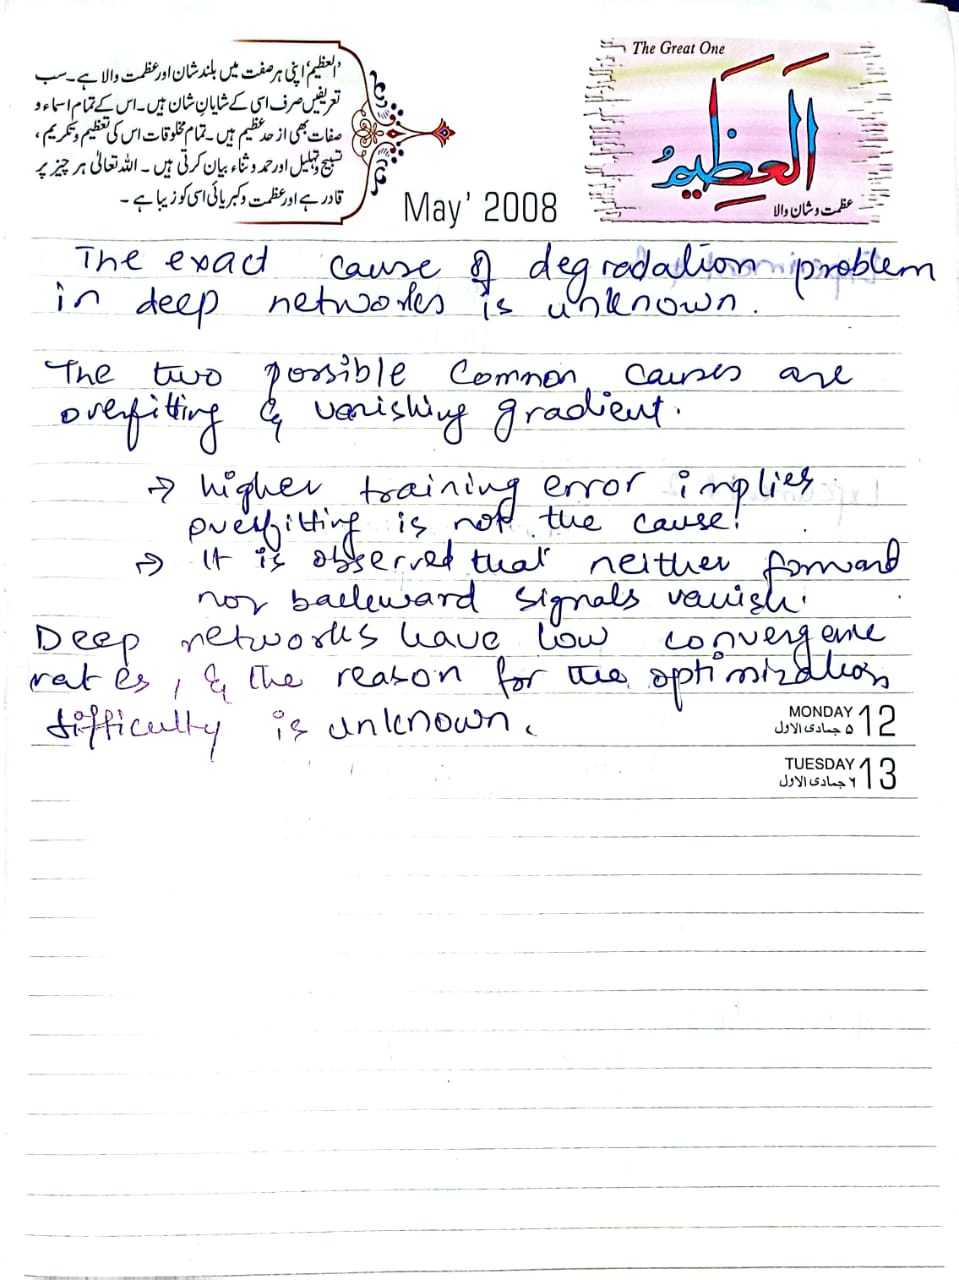 'العظیم' اپنی ہر صفت میں بلند شان اور عظمت والا ہے۔ سب
تعریفیں صرف اسی کے شایانِ شان ہیں۔ اس کے تمام اسماء و
صفات بھی از حد عظیم ہیں۔ تمام مخلوقات اس کی تعظیم و تکریم،
تسبیح و تہلیل اور حمد و ثناء بیان کرتی ہیں۔ اللہ تعالیٰ ہر چیز پر
قادر ہے اور عظمت و کبریائی اسی کو زیبا ہے۔
May' 2008
The Great One
اَلعَظِیمُ
عظمت و شان والا
The exact cause of degradation problem
in deep networks is unknown.
The two possible common causes are
overfitting & vanishing gradient.
→ higher training error implies
overfitting is not the cause!
→ It is observed that neither forward
nor backward signals vanish.
Deep networks have low convergence
rates, & the reason for the optimization
difficulty is unknown.
MONDAY 12
۵ جمادی الاول
TUESDAY 13
۶ جمادی الاول